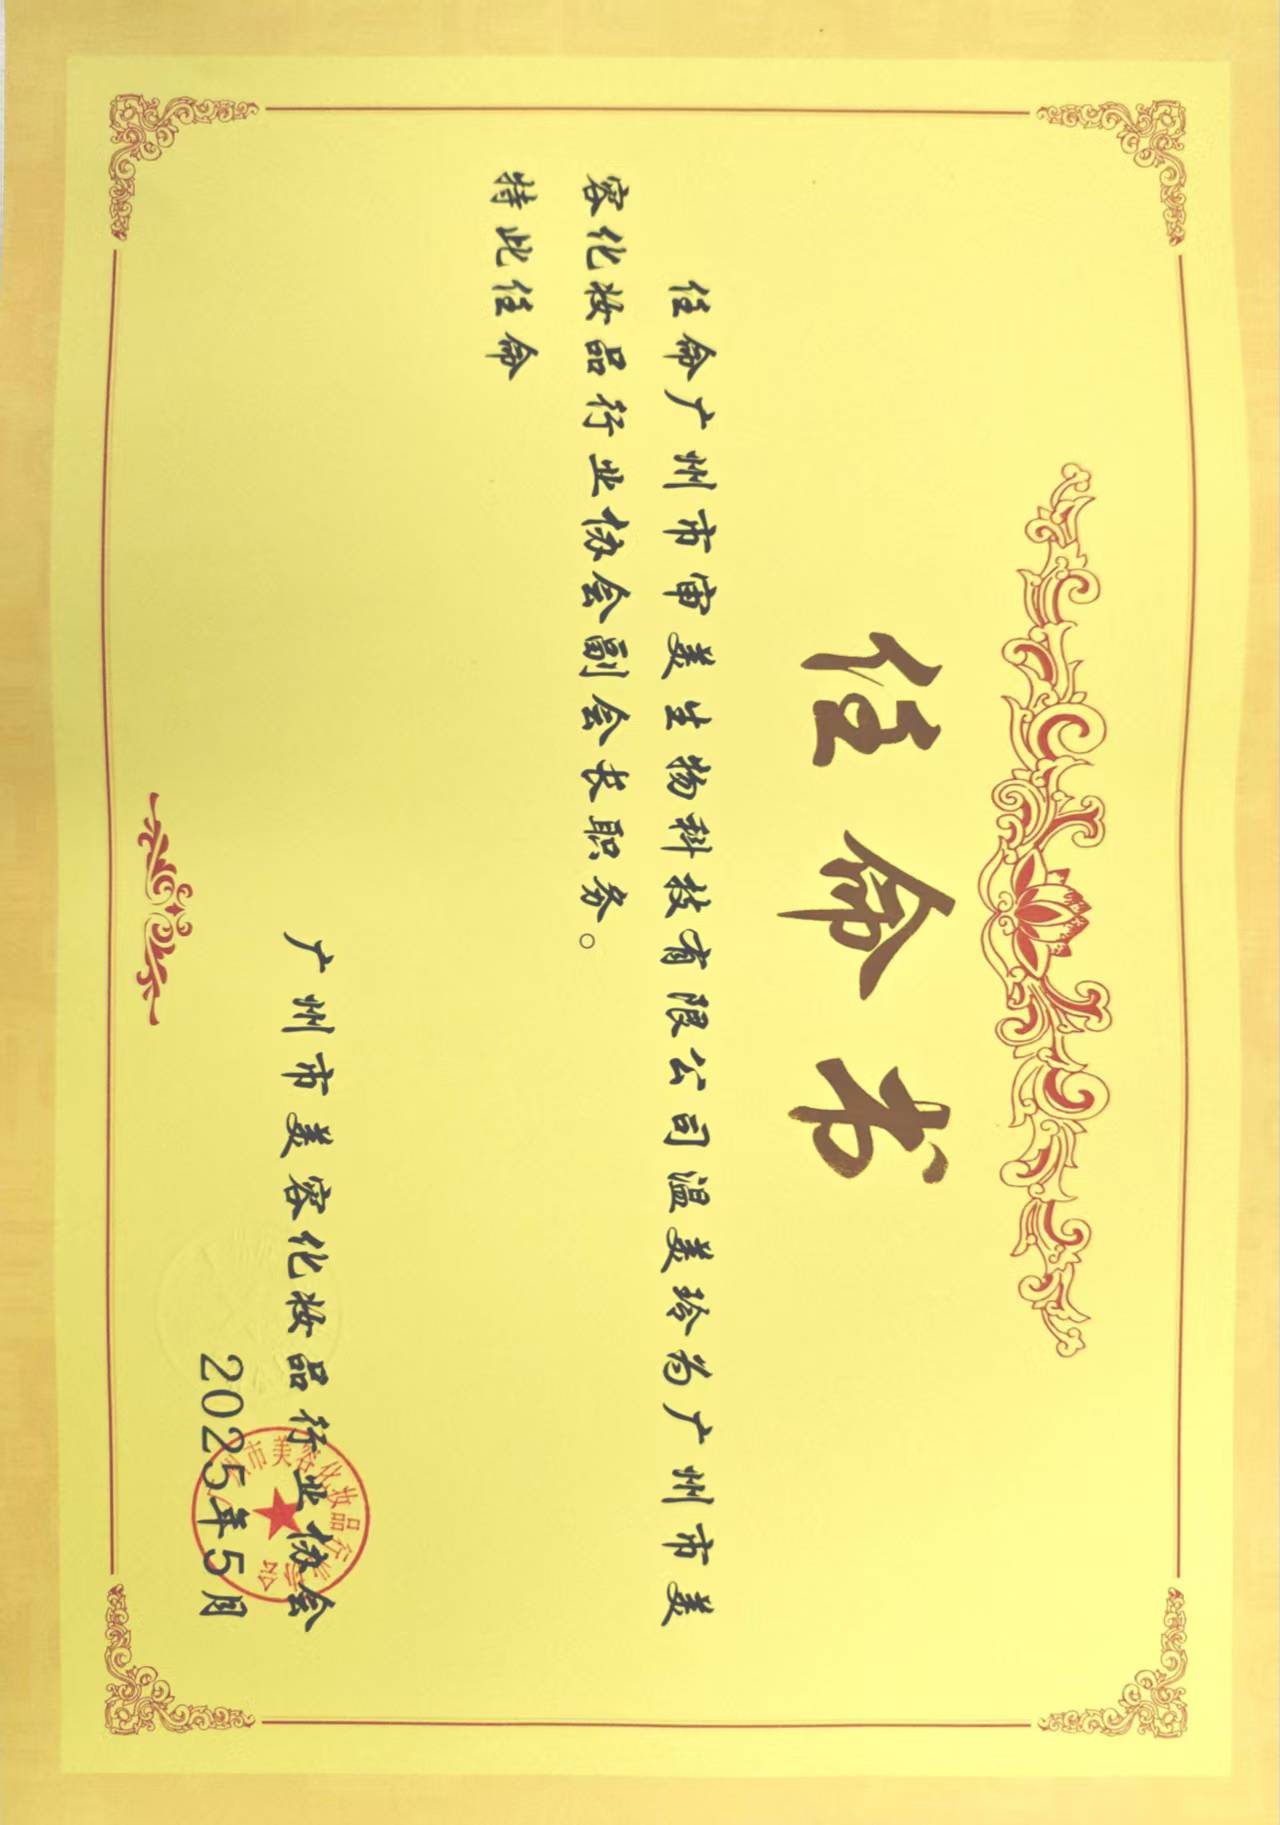 任命书
任命广州市审美生物科技有限公司温美玲为广州市美
容化妆品行业协会副会长职务。
特此任命
广州市美容化妆品行业协会
2025年5月
州市美容化妆品行业协会